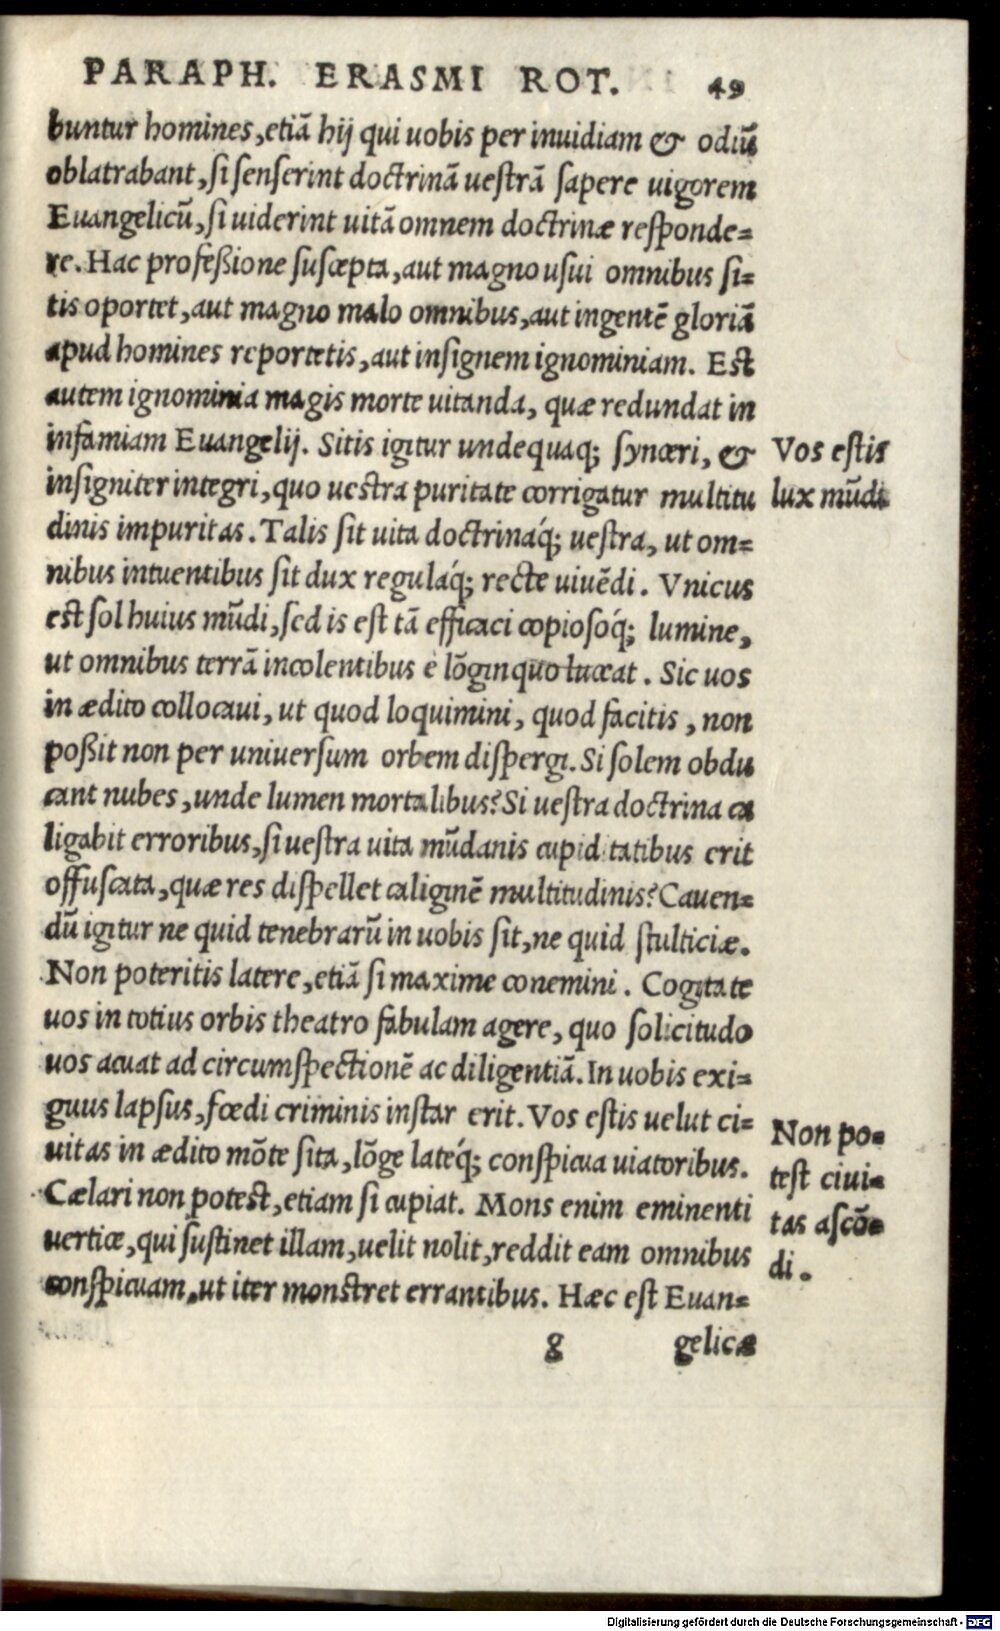 PARAPH. ERASMI ROT. 49
buntur homines, etiã hij qui uobis per inuidiam & odiũ
oblatrabant, si senserint doctrinã uestrã sapere uigorem
Euangelicũ, si uiderint uitã omnem doctrinæ responde=
re. Hac profeßione suscepta, aut magno usui omnibus si=
tis oportet, aut magno malo omnibus, aut ingentẽ gloriã
apud homines reportetis, aut insignem ignominiam. Est
autem ignominia magis morte uitanda, quæ redundat in
infamiam Euangelij. Sitis igitur undequaq; synceri, &
insigniter integri, quo uestra puritate corrigatur multitu
dinis impuritas. Talis sit uita doctrináq; uestra, ut om=
nibus intuentibus sit dux reguláq; recte uiuẽdi. Vnicus
est sol huius mũdi, sed is est tã efficaci copiosóq; lumine,
ut omnibus terrã incolentibus è lõginquo luceat. Sic uos
in ædito collocaui, ut quod loquimini, quod facitis, non
poßit non per uniuersum orbem dispergi. Si solem obdu
cant nubes, unde lumen mortalibus? Si uestra doctrina ca
ligabit erroribus, si uestra uita mũdanis cupiditatibus erit
offuscata, quæ res dispellet caliginẽ multitudinis? Cauen=
dũ igitur ne quid tenebrarũ in uobis sit, ne quid stulticiæ.
Non poteritis latere, etiã si maxime conemini. Cogitate
uos in totius orbis theatro fabulam agere, quo solicitudo
uos acuat ad circumspectionẽ ac diligentiã. In uobis exi=
guus lapsus, fœdi criminis instar erit. Vos estis uelut ci=
uitas in ædito mõte sita, lõge latéq; conspicua uiatoribus.
Cælari non potest, etiam si cupiat. Mons enim eminenti
uertice, qui sustinet illam, uelit nolit, reddit eam omnibus
conspicuam, ut iter monstret errantibus. Hæc est Euan=
g gelicæ
Vos estis
lux mũdi
Non po=
test ciui=
tas ascõ=
di.
Digitalisierung gefördert durch die Deutsche Forschungsgemeinschaft - DFG